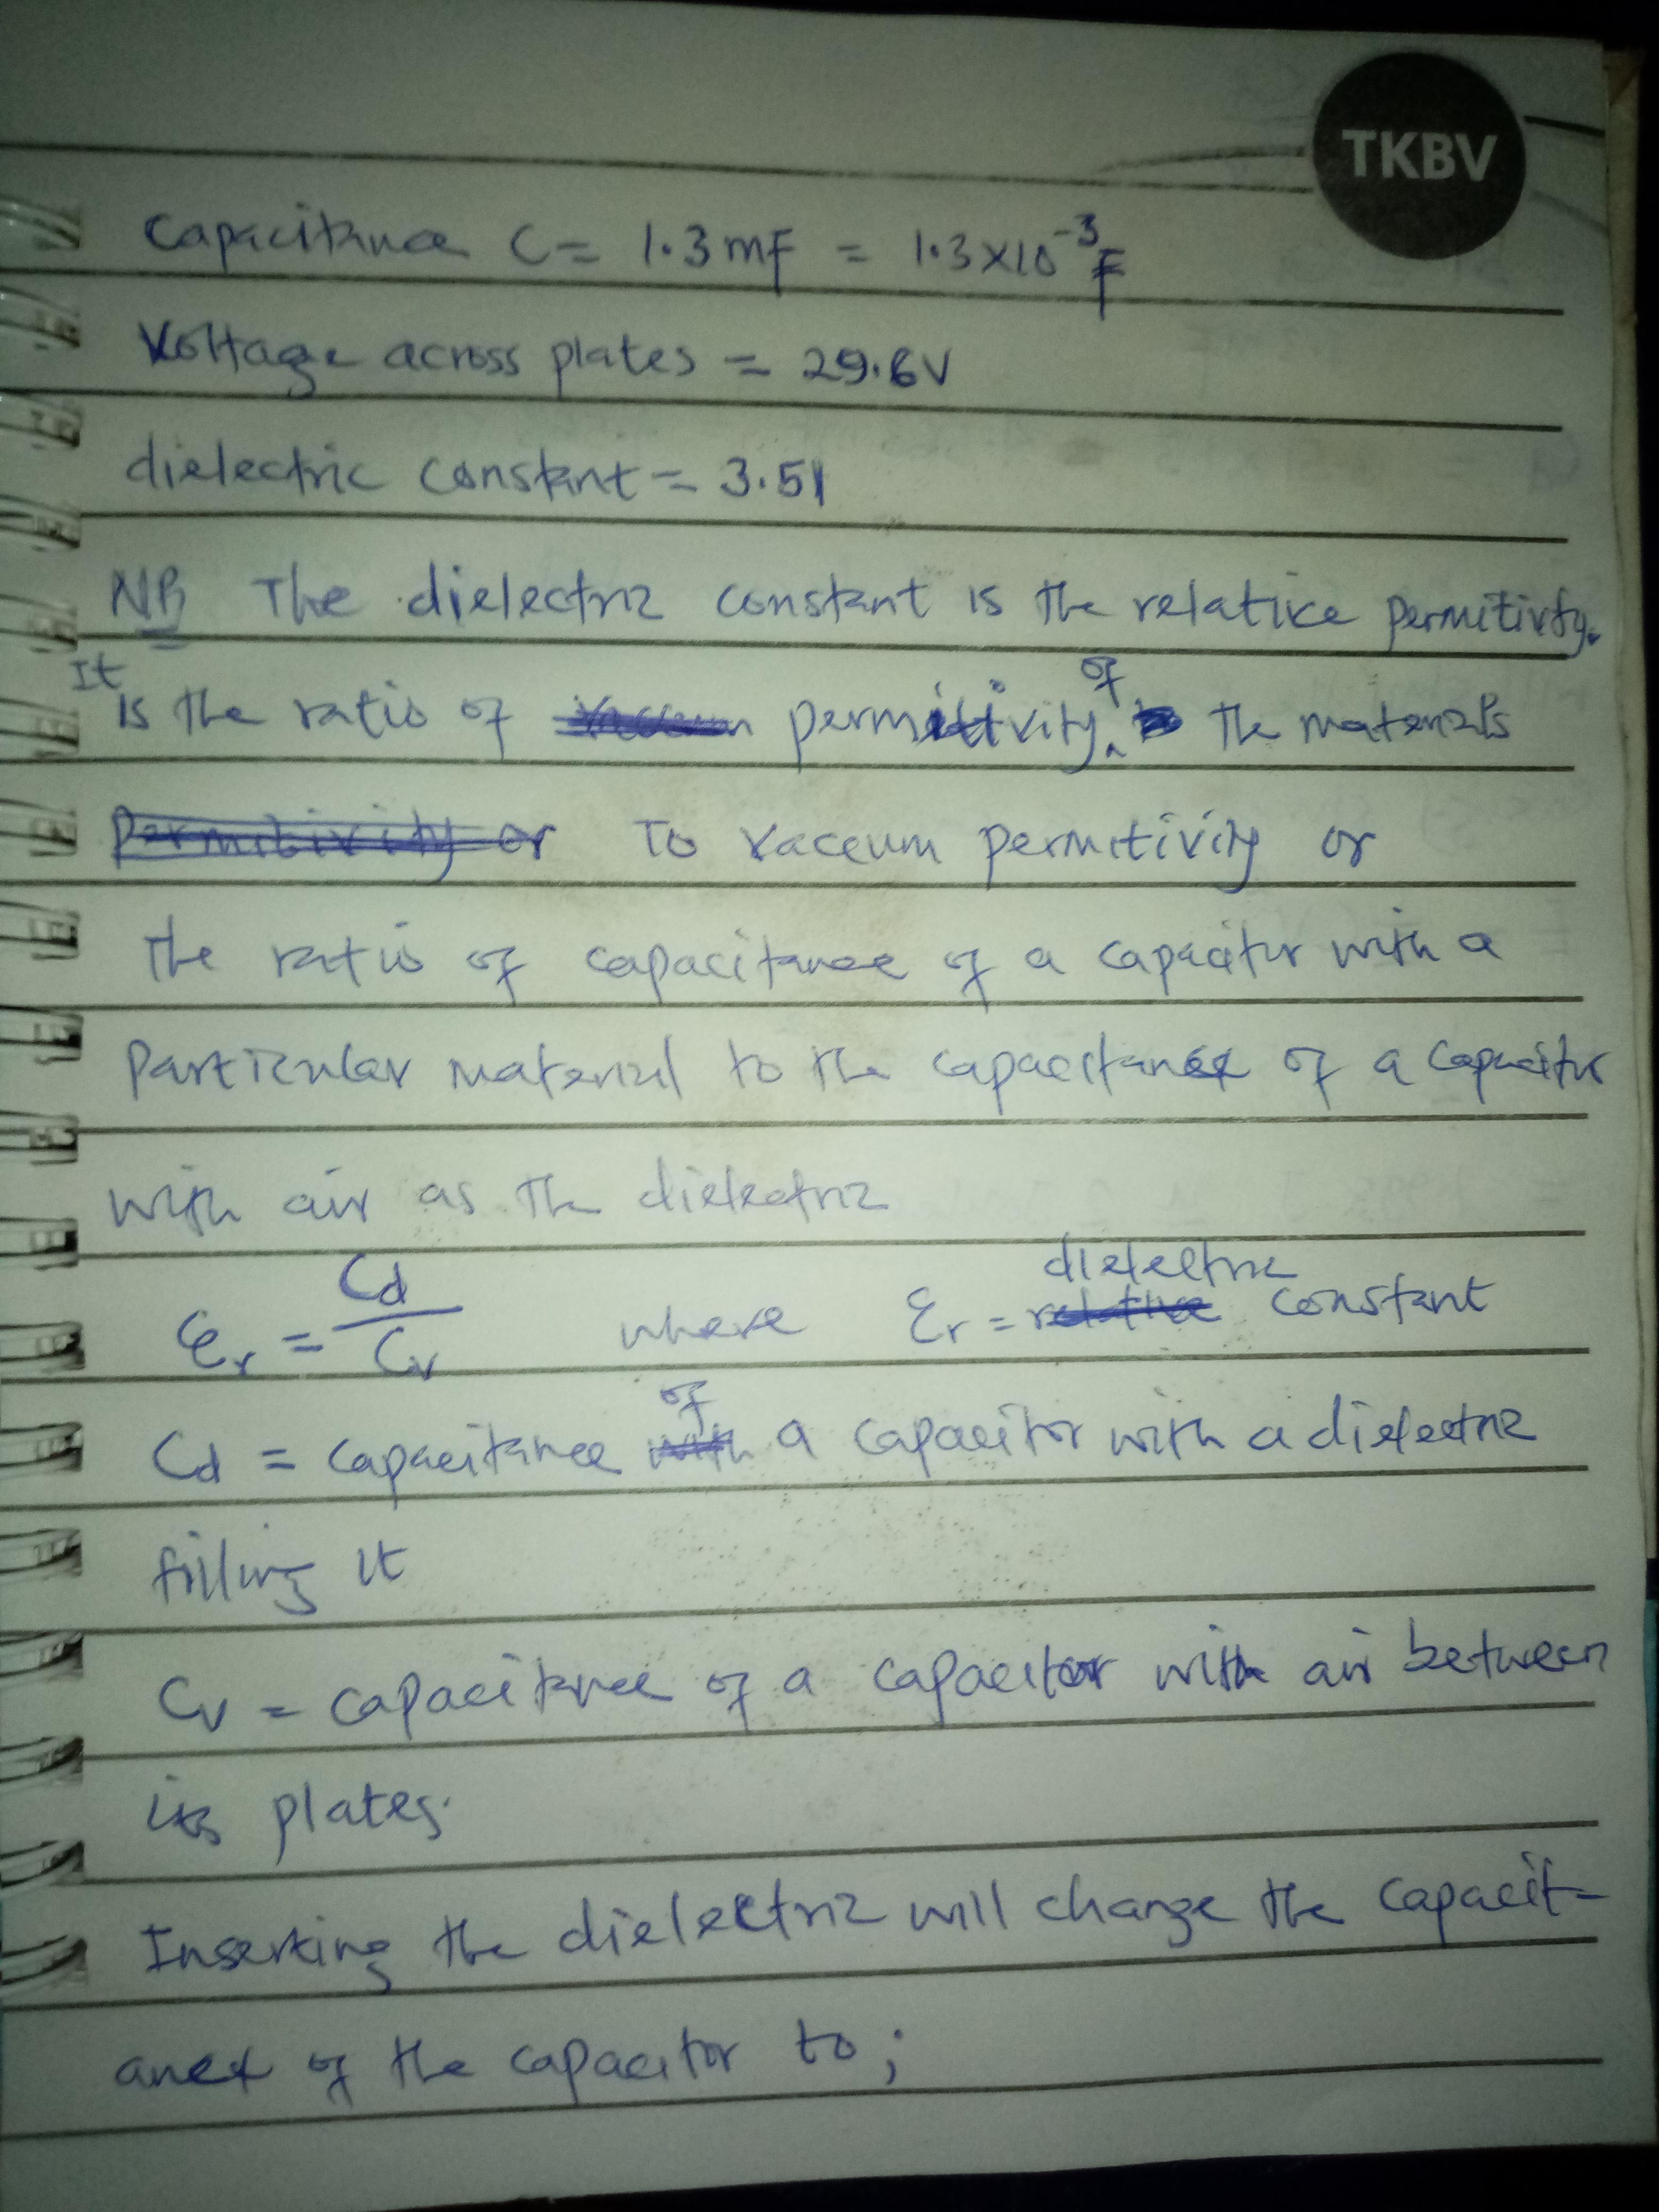 TKBV
Capacitance C = 1.3mF = 1.3×10⁻³F
Voltage across plates = 29.6V
dielectric constant = 3.51
NB The dielectric constant is the relative permitivity.
It is the ratio of permittivity of the materials
To vaccum permitivity or
the ratio of capacitance of a capacitor with a
particular material to the capacitance of a capacitor
with air as the dielectric
εr = Cd/Cv where εr = dielectric constant
Cd = capacitance of a capacitor with a dielectric
filling it
Cv = capacitance of a capacitor with air between
its plates.
Inserting the dielectric will change the capacit-
ance of the capacitor to;